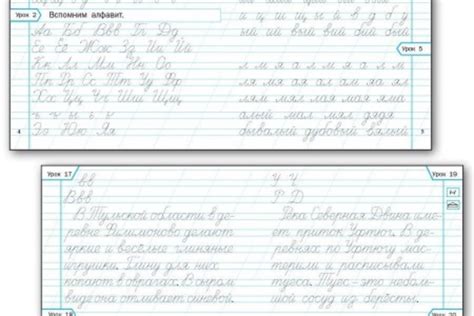 Урок 2
Вспомним алфавит.
Аа Бб Вв Гг Дд
Ее Ёё Жж Зз Ии Йй
Кк Лл Мм Нн Оо
Пп Рр Сс Тт Уу Фф
Хх Цц Чч Шш Щщ
ъ ы ь
Ээ Юю Яя
4
и ц ш щ ы й в д б у
ый ий вый вий бий бый
Урок 5
л м я а л м я а л м
ля мя ая ал ам яа ял
лям мял лая мая яма
алый мал мял дядя
бывалый дубовый вялый
5
Урок 17
вв
Ввв
В Тульской области в де-
ревне Филимоново делают
яркие и весёлые глиняные
игрушки. Глину для них
копают в оврагах. В сыром
виде она отливает синевой.
Урок 18
Урок 19
У Ч
Р D
Река Северная Двина име-
ет приток Уфтюг. В де-
ревнях по Уфтюгу мас-
терили и расписывали
туеса. Туес – это неболь-
шой сосуд из берёсты.
Урок 20